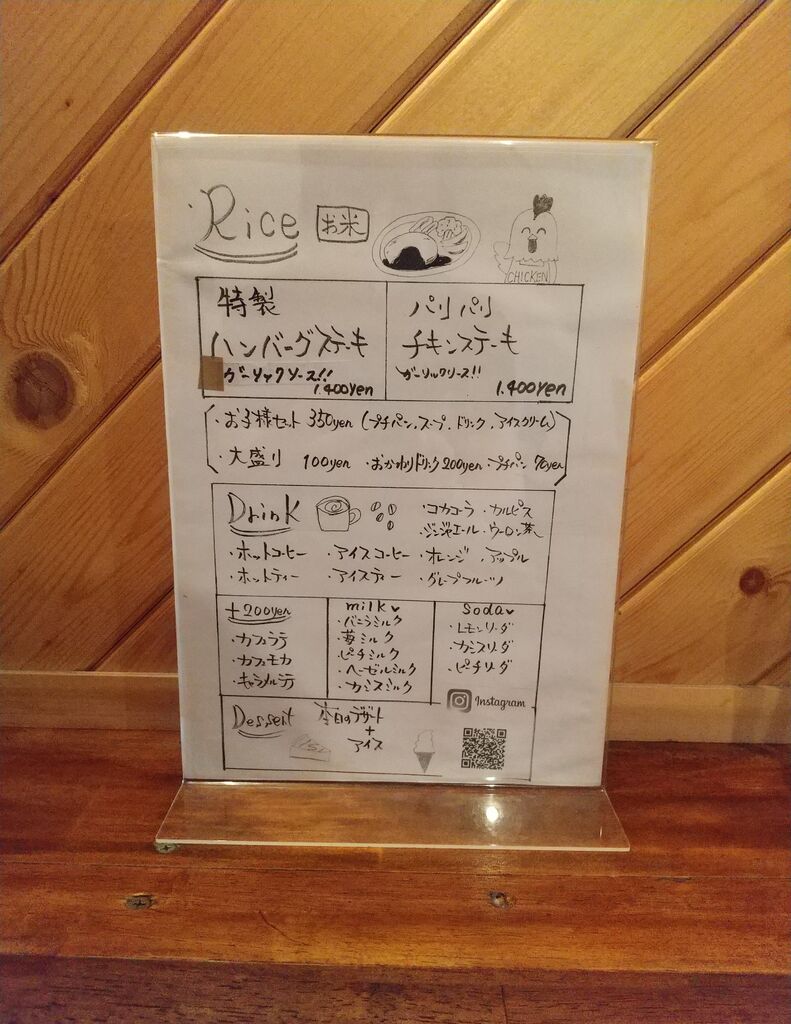 Rice お米
CHICKEN
特製
ハンバーグステーキ
ガーリックソース!!
1.400yen
パリパリ
チキンステーキ
ガーリックソース!!
1.400yen
・お子様セット 350yen (プチパン、スープ、ドリンク、アイスクリーム)
・大盛り 100yen ・おかわりドリンク200yen ・プチパン 70yen
Drink
・コカコーラ ・カルピス
・ジンジャエール ・ウーロン茶
・ホットコーヒー ・アイスコーヒー ・オレンジ ・アップル
・ホットティー ・アイスティー ・グレープフルーツ
+200yen
・カフェラテ
・カフェモカ
・キャラメルラテ
milk
・バニラミルク
・苺ミルク
・ピーチミルク
・ヘーゼルミルク
・カシスミルク
soda
・レモンソーダ
・カシスソーダ
・ピーチソーダ
Instagram
Dessert 本日のデザート
+
アイス